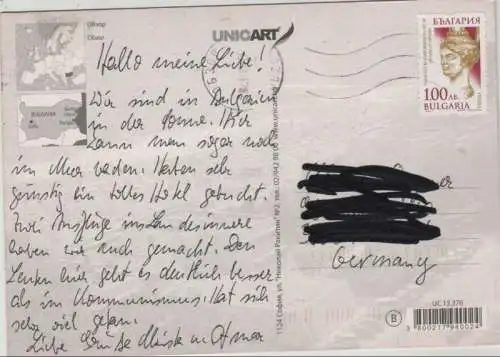 Обзор
Obzor
UNICART
БЪЛГАРИЯ
1.00 лв.
BULGARIA
BULGARIA
Hallo meine Liebe!
Wir sind in Bulgarien
in der Sonne. Hier
kann man sogar noch
im Meer baden. Haben sehr
günstig ein tolles Hotel gebucht.
Zwei Ausflüge ins Landesinnere
haben wir auch gemacht. Den
Leuten hier geht es deutlich besser
als im Kommunismus. Hat sich
sehr viel getan.
Liebe Grüße
Germany
1124 София, ул. "Николай Ракитин" №2, тел. 02/942 98 00 www.unicart.bg
UC 13.376
B
3 800217 940024